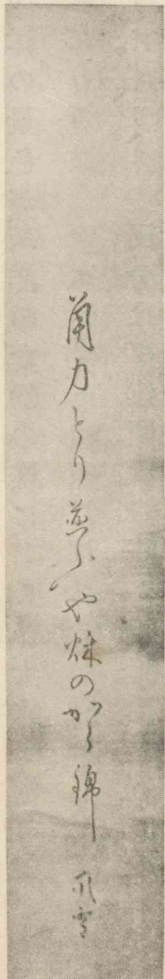 角力とり並ふや秌のから錦　嵐雪